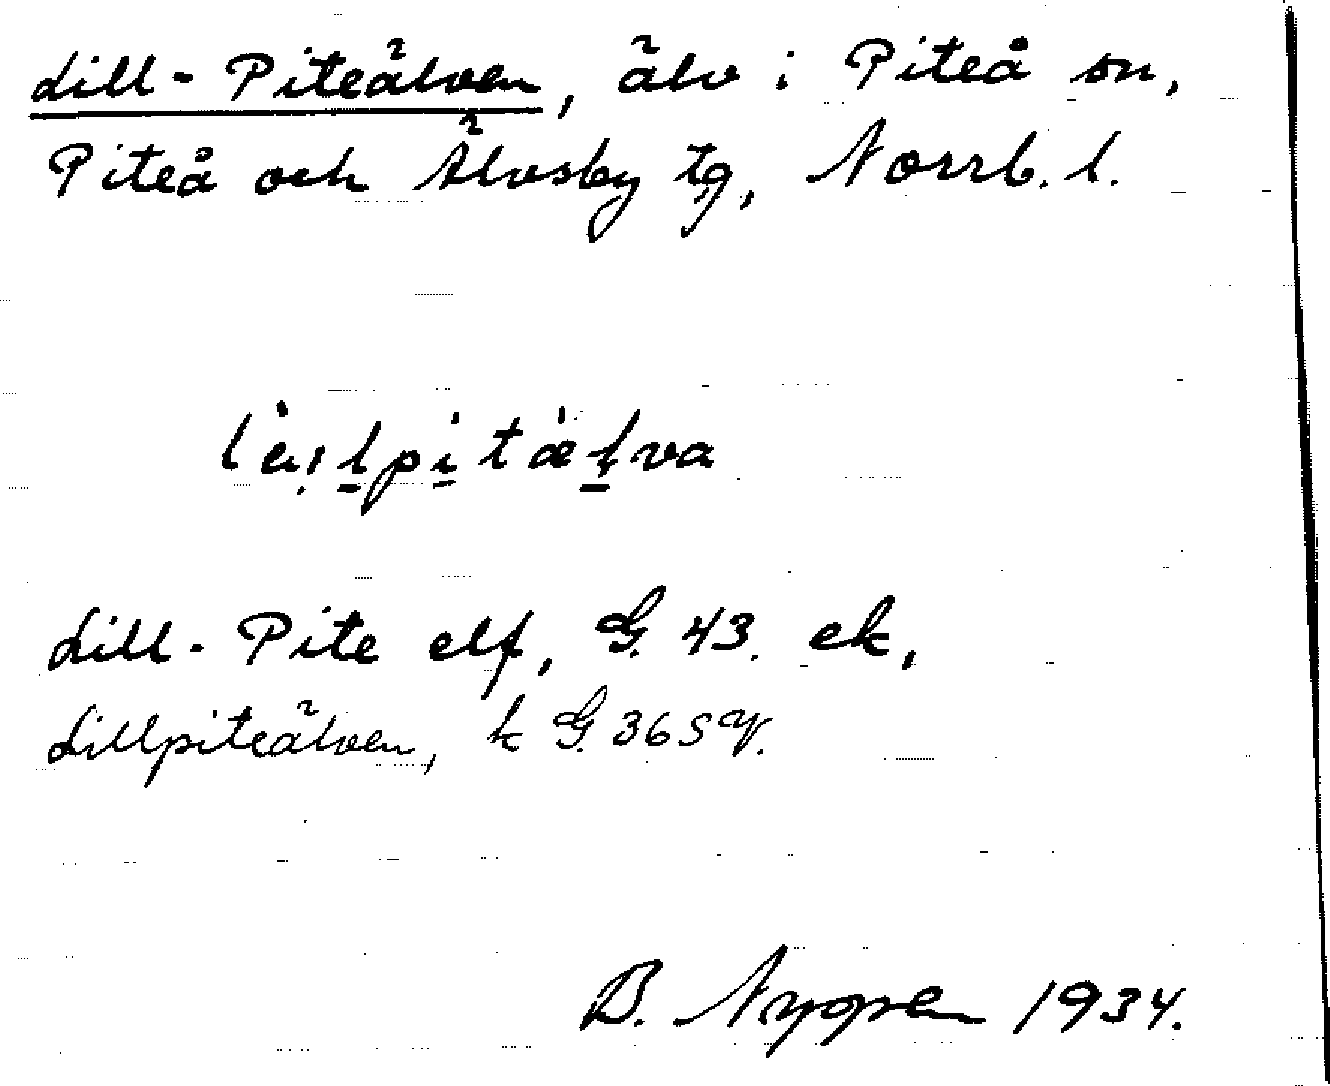 Lill-Piteälven, älv i Piteå sn,
Piteå och Älvsby tg, Norrb. l.
Lill-Pite elf, G. 43. ek,
Lillpiteälven, k G. 365 y.
B. 1934.